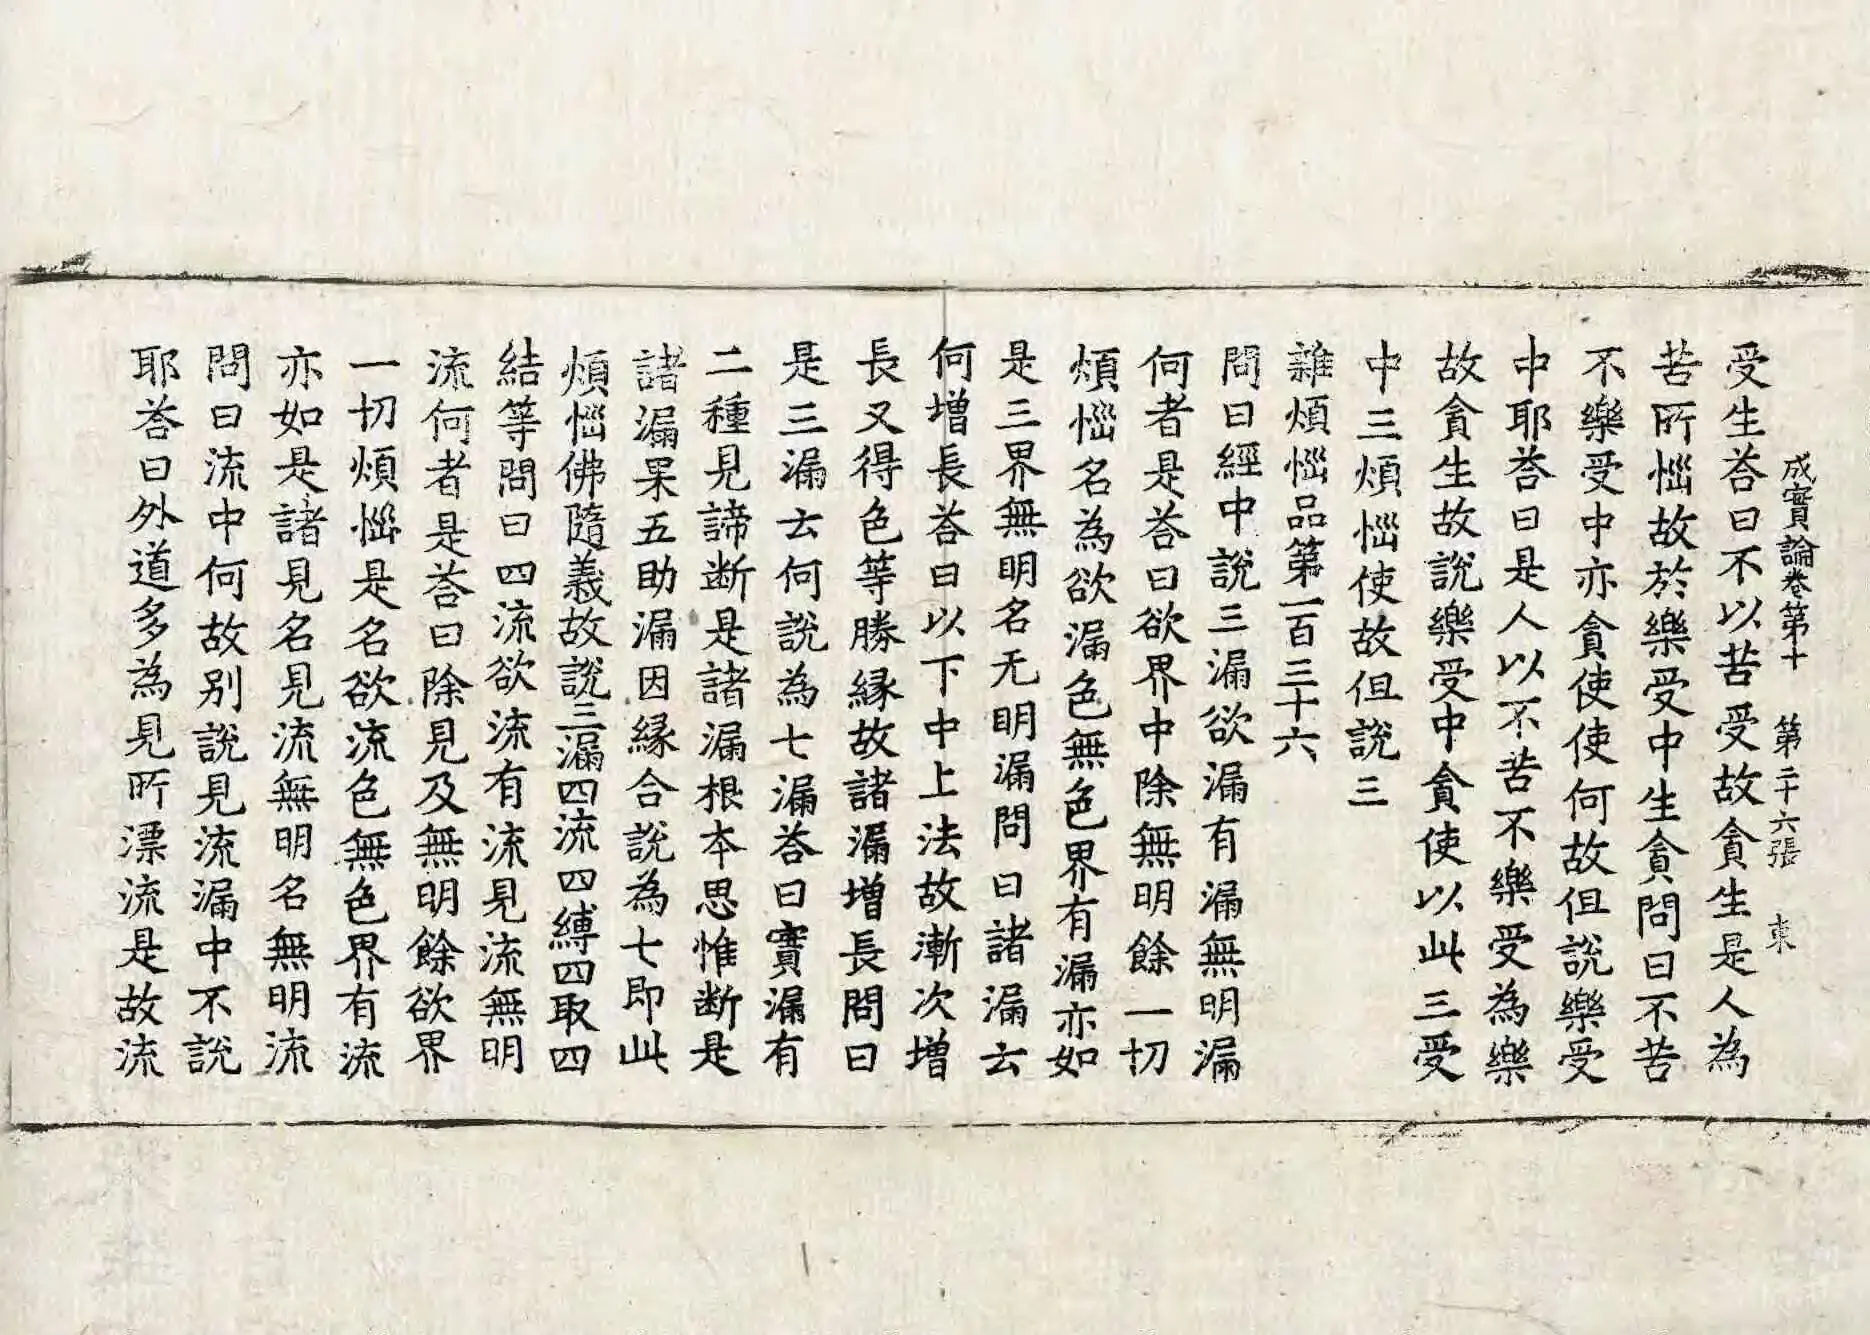 成實論卷第十　第二十六張　東
受生荅曰不以苦受故貪生是人為
苦所惱故於樂受中生貪問曰不苦
不樂受中亦貪使使何故但說樂受
中耶荅曰是人以不苦不樂受為樂
故貪生故說樂受中貪使以此三受
中三煩惱使故但說三
雜煩惱品第一百三十六
問曰經中說三漏欲漏有漏無明漏
何者是荅曰欲界中除無明餘一切
煩惱名為欲漏色無色界有漏亦如
是三界無明名无明漏問曰諸漏云
何增長荅曰以下中上法故漸次增
長又得色等勝緣故諸漏增長問曰
是三漏云何說為七漏荅曰實漏有
二種見諦断是諸漏根本思惟断是
諸漏果五助漏因緣合說為七即此
煩惱佛隨義故說三漏四流四縛四取四
結等問曰四流欲流有流見流無明
流何者是荅曰除見及無明餘欲界
一切煩惱是名欲流色無色界有流
亦如是諸見名見流無明名無明流
問曰流中何故別說見流漏中不說
耶荅曰外道多為見所漂流是故流